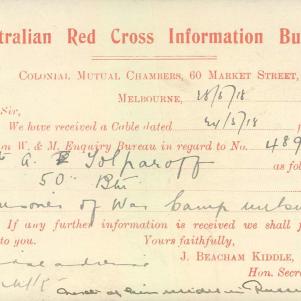 tralian Red Cross Information Bu
COLONIAL MUTUAL CHAMBERS, 60 MARKET STREET,
MELBOURNE, 28/5/18
Sir,
We have received a Cable dated 24/5/18
on W. & M. Enquiry Bureau in regard to No. 489
A. Tolparoff as fo
50th Btn
isoner of War Camp
If any further information is received we shall f
to you. Yours faithfully,
J. BEACHAM KIDDLE,
Hon. Secre